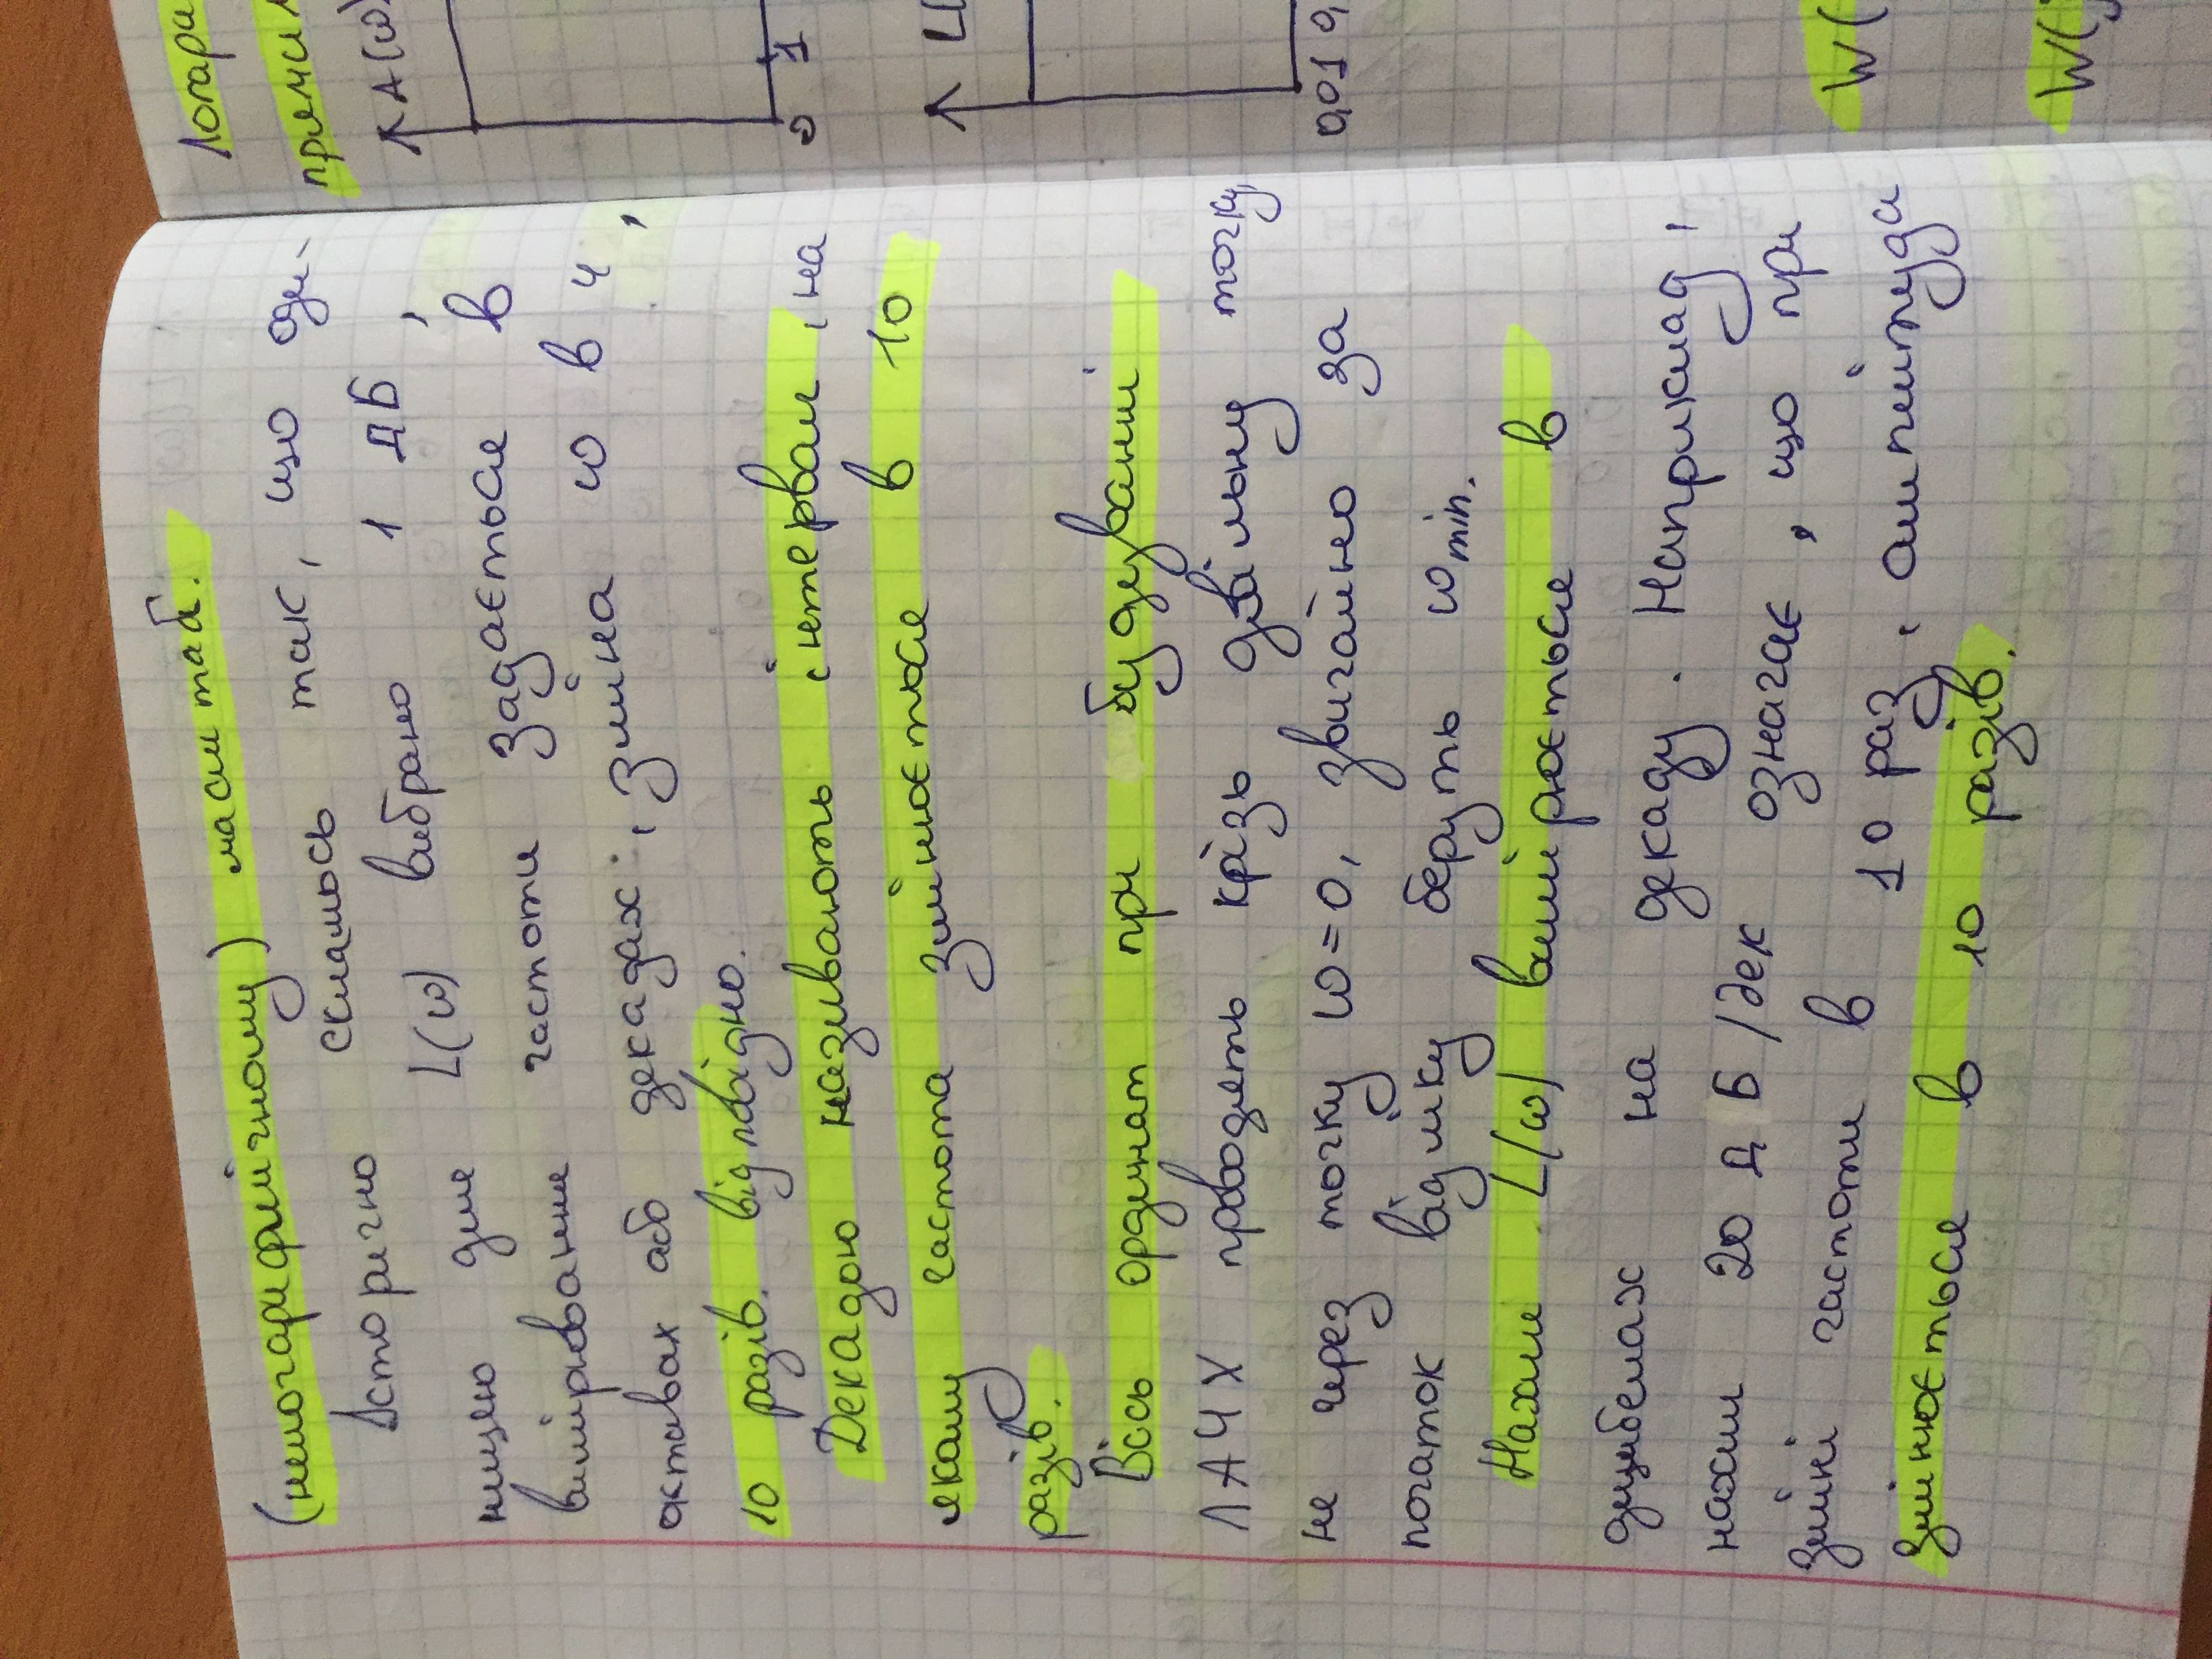 (нелогарифмічному) масштабі.
Історично склалось так, що оди-
ницею для L(ω) вибрано 1 дБ,
вимірювання частоти задається в
октавах або декадах, зміна ω в 4,
10 разів. відповідно.
Декадою називають інтервал, на
якому частота змінюється в 10
разів.
Вісь ординат при будуванні
ЛАЧХ проводять крізь довільну точку,
не через точку ω=0, звичайно за
початок відліку беруть ωmin.
Нахил L(ω) вимірюється в
децибелах на декаду. Наприклад,
нахил 20 дБ/дек означає, що при
зміні частоти в 10 раз, амплітуда
змінюється в 10 разів.
Логари
прями
A(ω)
0 1
L(
0,01 0,
W(
W(j